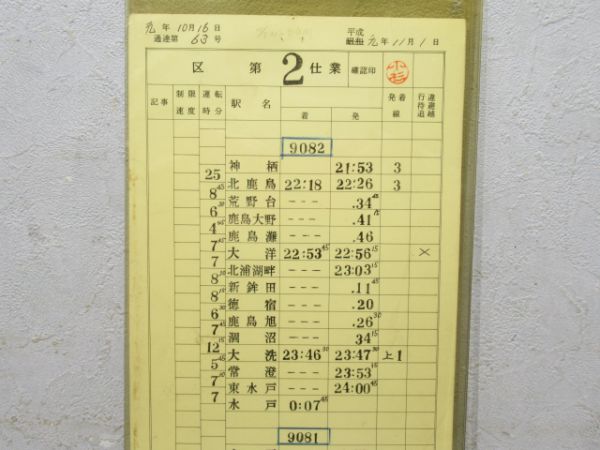 元 年 10月 16日
通達第 63号
平成 昭和 元年 11月 1日
区 第 2 仕業 確認印 小杉
記事 制限速度 運転時分 駅名 着 発 発着線 行違待避追越
9082
25 神栖 21:53 3
8 45 北鹿島 22:18 22:26 3
6 30 荒野台 --- .34 45
4 45 鹿島大野 --- .41 15
7 45 鹿島灘 --- .46
7 大洋 22:53 45 22:56 15 ×
8 30 北浦湖畔 --- 23:03 15
8 15 新鉾田 --- .11 45
6 30 徳宿 --- .20
7 45 鹿島旭 --- .26 30
12 15 涸沼 --- 34 15
5 45 大洗 23:46 30 23:47 30 上1
7 30 常澄 --- 23:53 15
7 東水戸 --- 24:00 45
水戸 0:07 45
9081